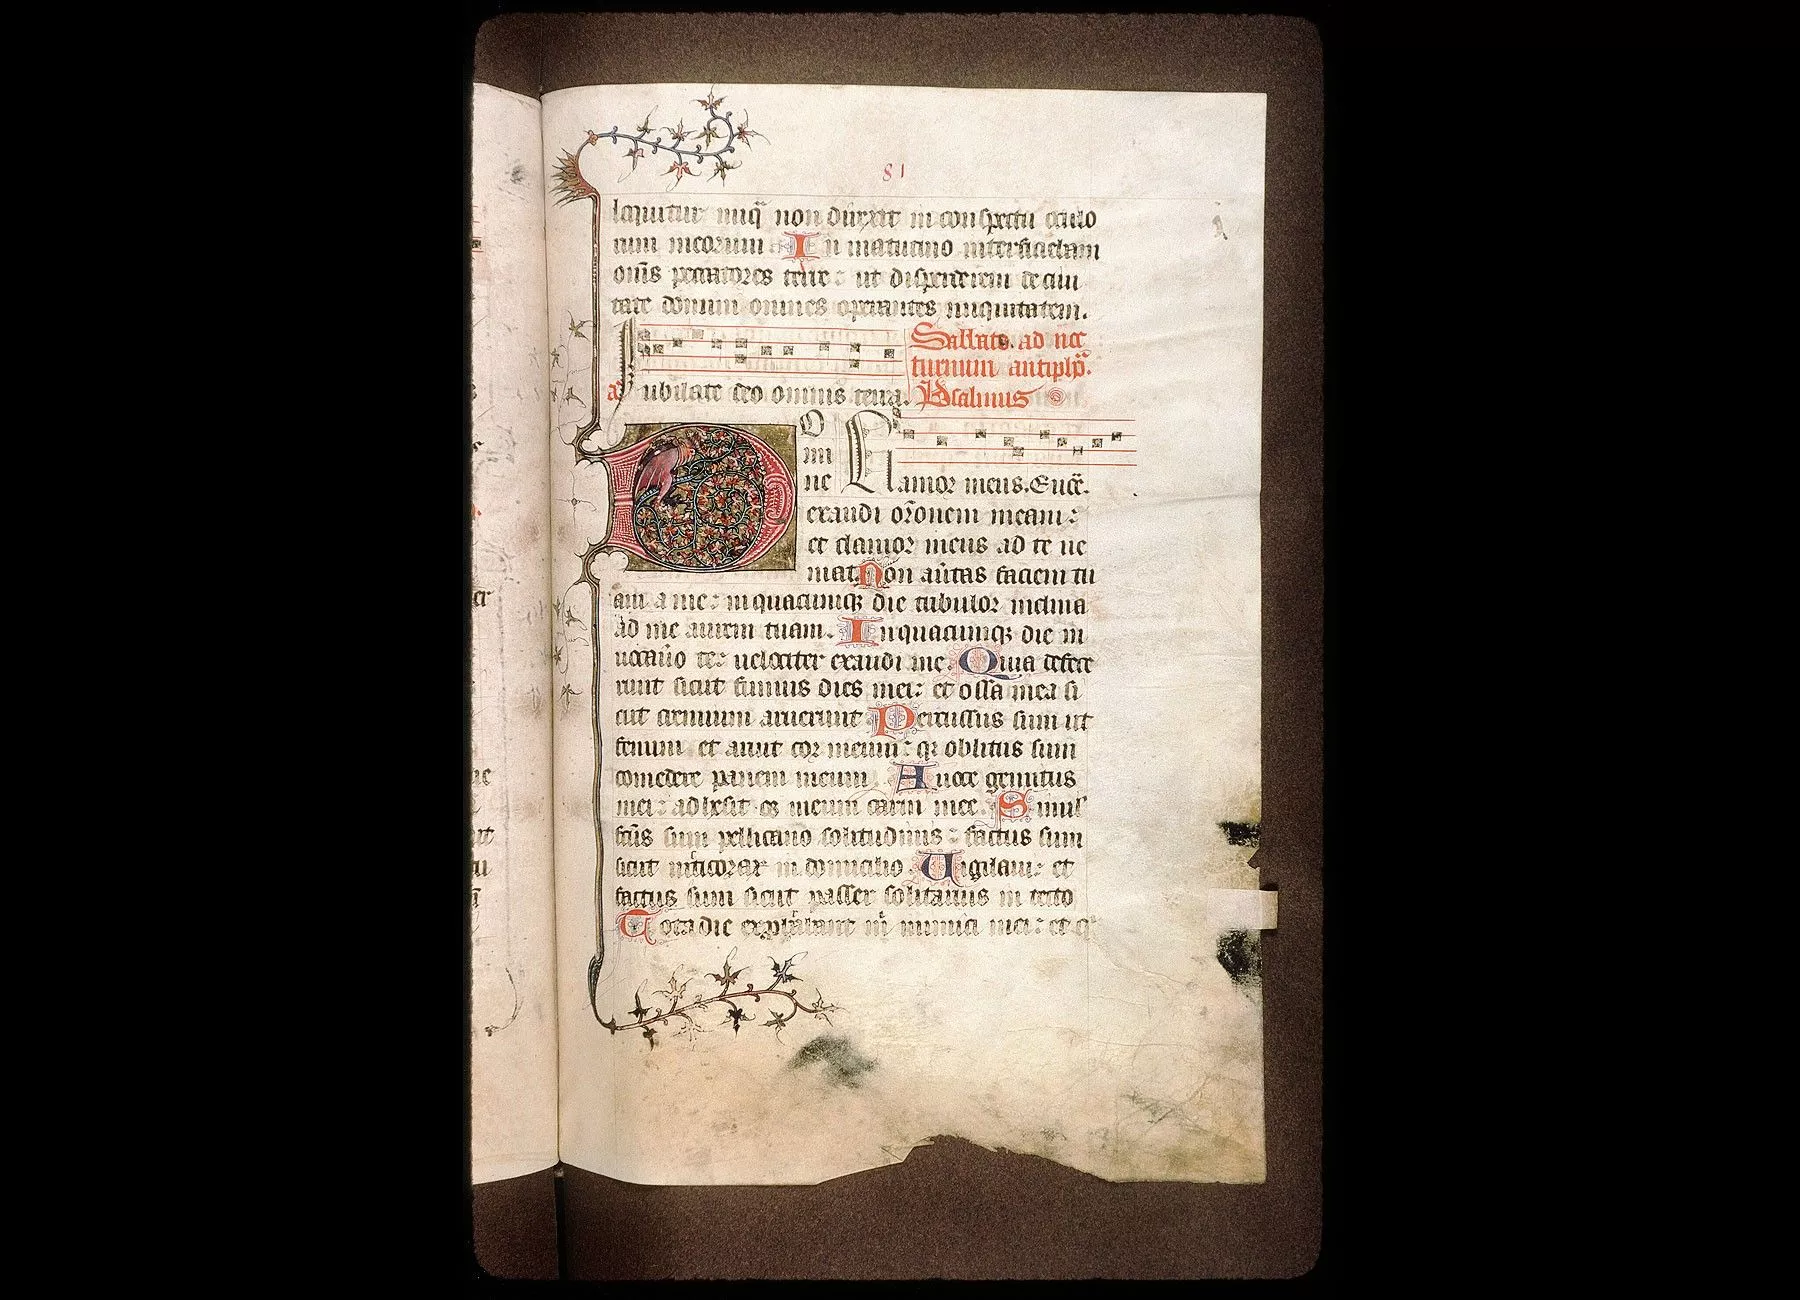 81
loquitur iniq̄ non direxit in conspectu oculo
rum meorum In matutino interficiebam
om̄s peccatores terre: ut disperderem de ciui
tate domini omnes operantes iniquitatem.
Sabbato ad noc
turnum antiph̄.
a Jubilate deo omnis terra. Psalmus
Do
mi
ne Clamor meus. Euōē.
exaudi or̄onem meam:
et clamor meus ad te ue
niat Non au̾tas faciem tu
am a me: in quacumq; die tribulor inclina
ad me aurem tuam. In quacumq; die in
uocau̾o te: uelociter exaudi me. Quia defece
runt sicut fumus dies mei: et ossa mea si
cut cremium aruerunt Percussus sum ut
fenum et aruit cor meum: q̄ oblitus sum
comedere panem meum. A uoce gemitus
mei: adhesit os meum carni mee. Simil'
fc̄us sum pellicano solitudinis: factus sum
sicut nicticorax in domicilio Uigilaui: et
factus sum sicut passer solitarius in tecto
Tota die exprobrabant m̄ inimici mei: et q